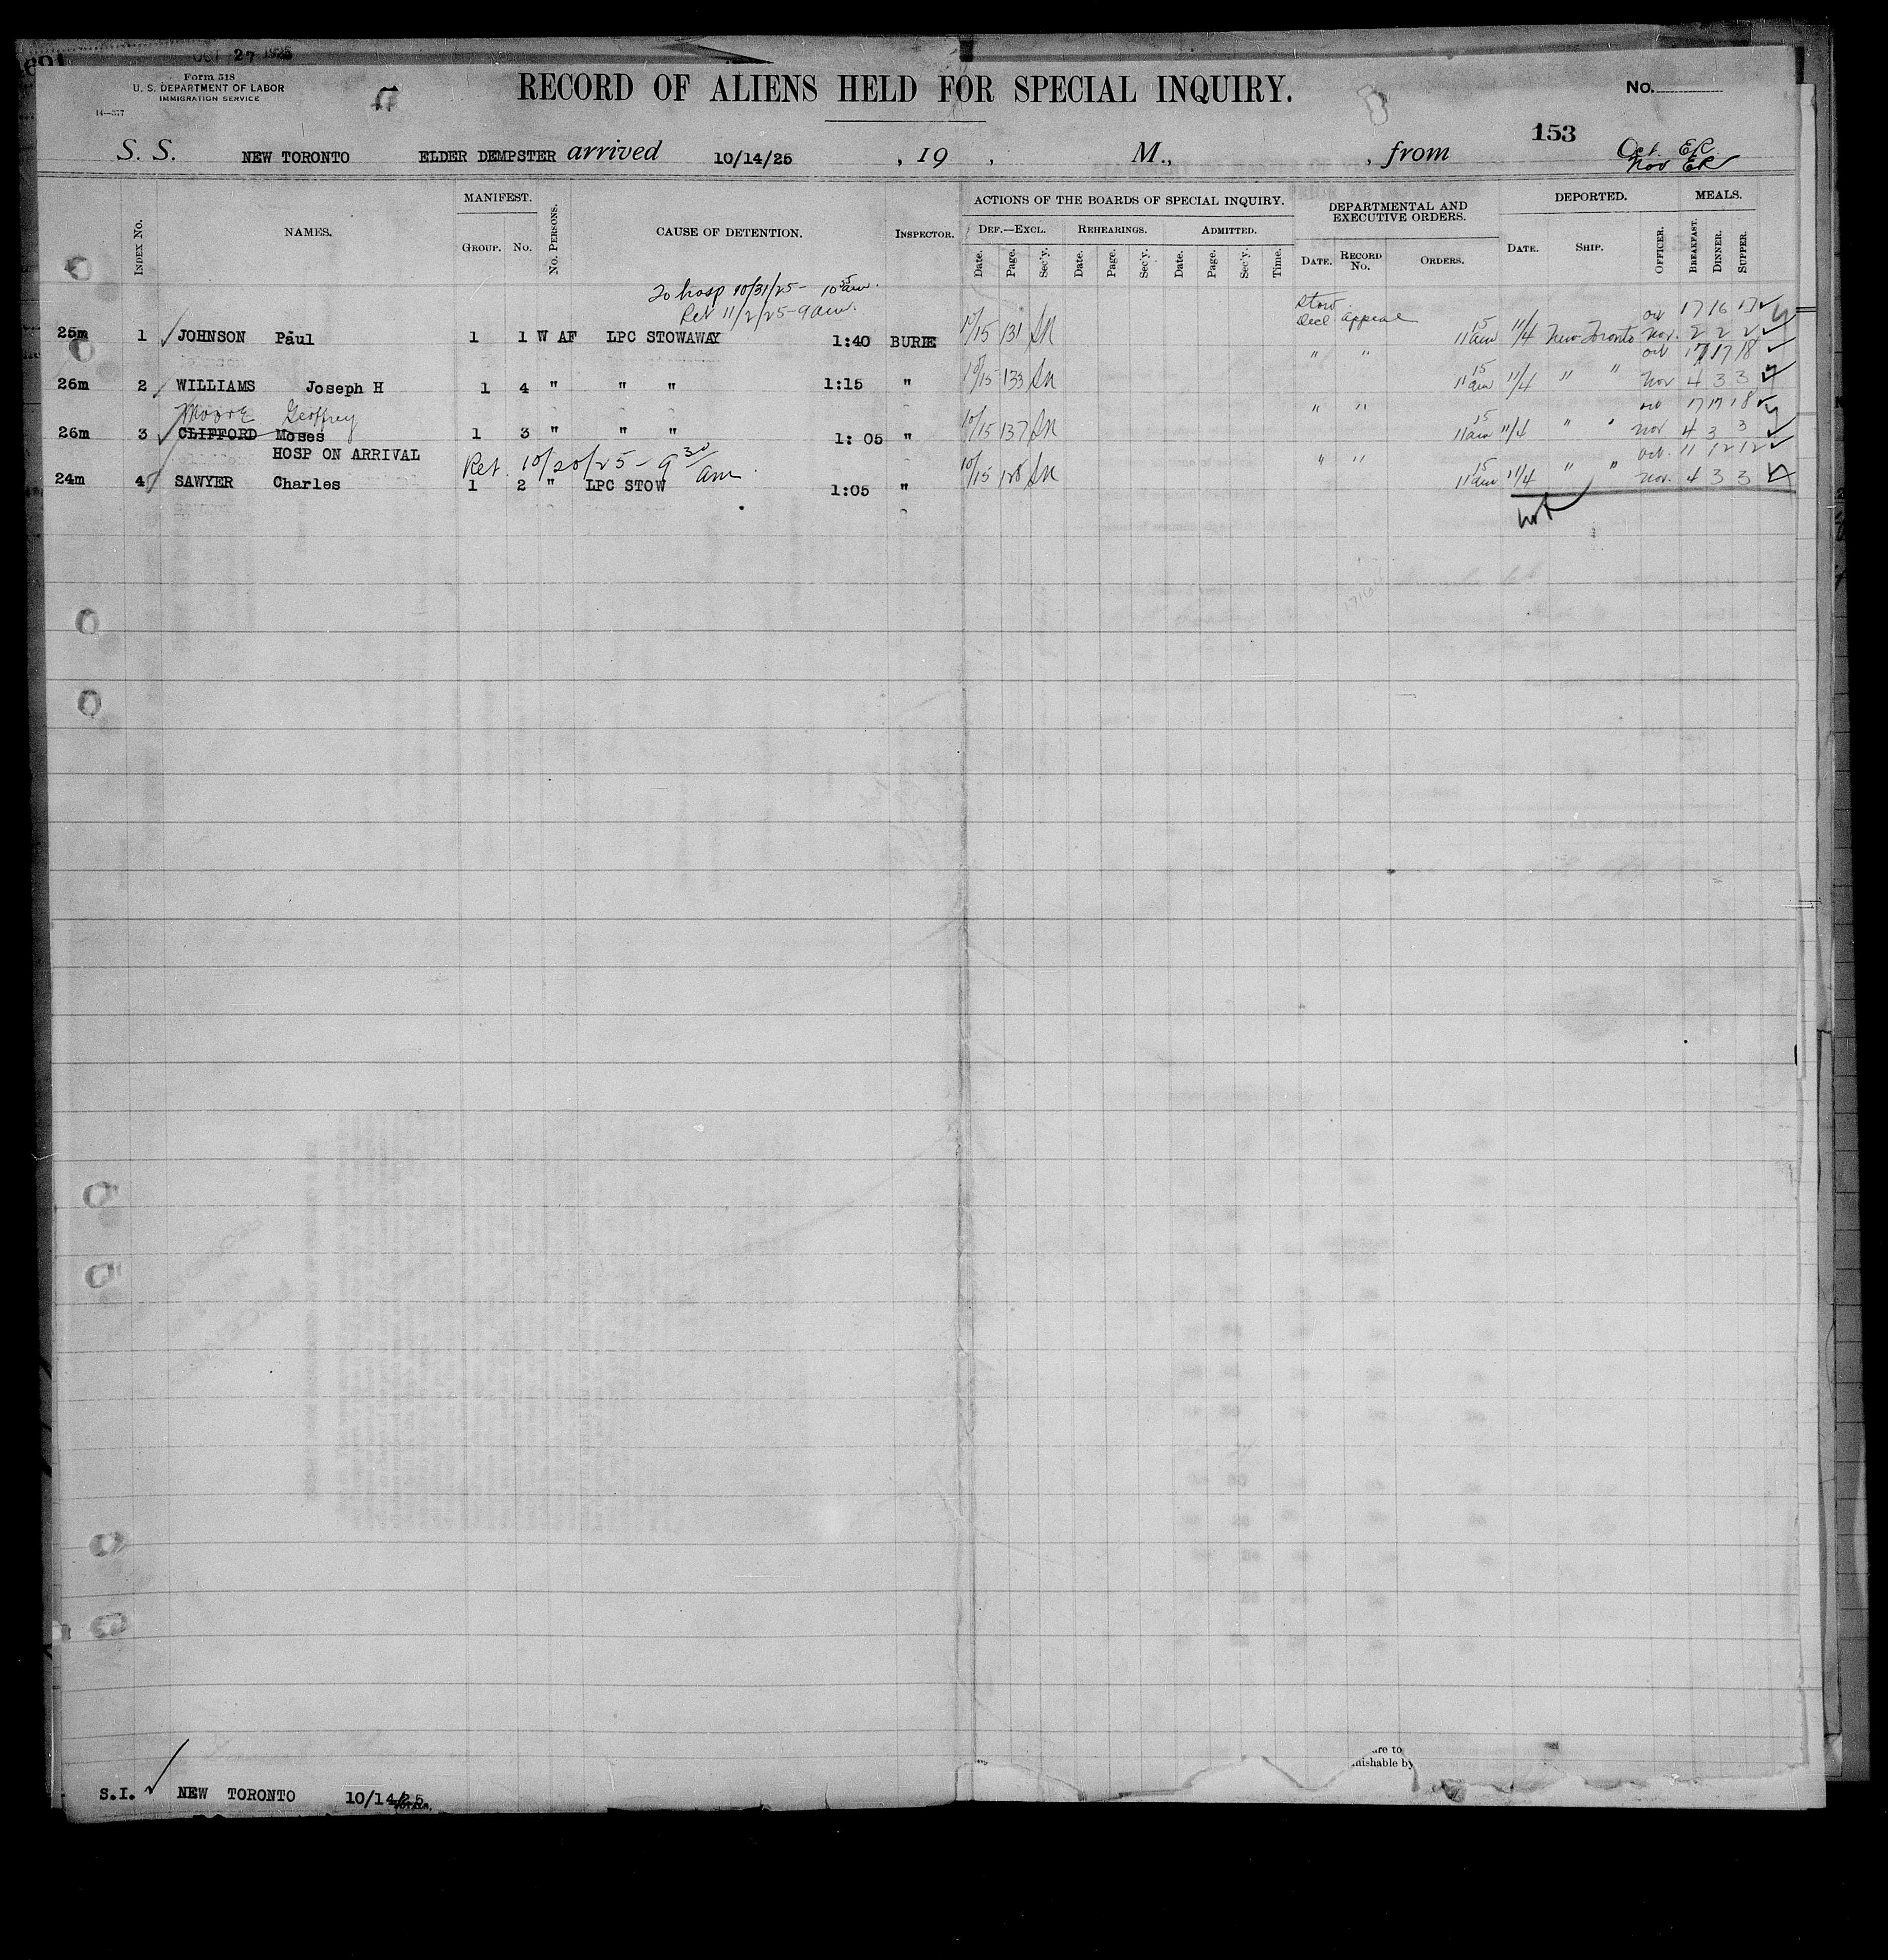 OCT 27 1925
Form 518
U. S. DEPARTMENT OF LABOR
IMMIGRATION SERVICE
14—377
RECORD OF ALIENS HELD FOR SPECIAL INQUIRY.
No.
153
S. S. NEW TORONTO ELDER DEMPSTER arrived 10/14/25 , 19 , M., , from
Oct. ER
Nov ER
INDEX No. NAMES. MANIFEST. GROUP. No. No. PERSONS. CAUSE OF DETENTION. INSPECTOR. ACTIONS OF THE BOARDS OF SPECIAL INQUIRY. DEF.—EXCL. Date. Page. Sec'y. REHEARINGS. Date. Page. Sec'y. ADMITTED. Date. Page. Sec'y. Time. DEPARTMENTAL AND EXECUTIVE ORDERS. DATE. RECORD No. ORDERS. DEPORTED. DATE. SHIP. OFFICER. MEALS. BREAKFAST. DINNER. SUPPER.
To hosp 10/31/25 - 10 25 am.
Ret 11/2/25 - 9 am.
Stow.
Decl appeal
Oct 17 16 17
25m 1 JOHNSON Paul 1 1 W AF LPC STOWAWAY 1:40 BURIE 10/15 131 SN 11 15 am 11/4 New Toronto Nov. 2 2 2
" " Oct 17 17 18
26m 2 WILLIAMS Joseph H 1 4 " " " 1:15 " 10/15 133 SN 11 15 am 11/4 " " Nov 4 3 3
Moore Geoffrey " " Oct 17 17 18
26m 3 CLIFFORD Moses 1 3 " " " 1:05 " 10/15 137 SN 11 15 am 11/4 " " Nov 4 3 3
HOSP ON ARRIVAL Ret. 10/20/25 - 9 30 am " " Oct. 11 12 12
24m 4 SAWYER Charles 1 2 " LPC STOW 1:05 " 10/15 128 SN 11 15 am 11/4 " " Nov. 4 3 3
are to
nishable by
S.I. NEW TORONTO 10/14/25